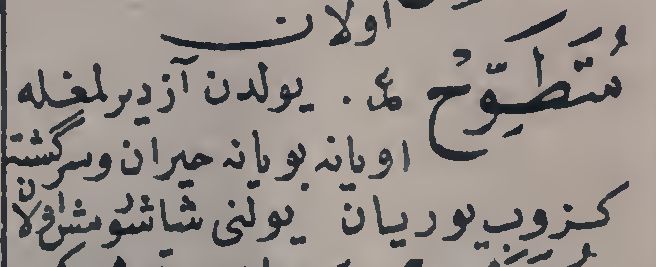 اولان
مُتَطَوِّحْ عر. يولدن آزديرلمغله
اويانه بويانه حيران وسرگشته
كزوب يوريان يولنى شاشرمش اولان